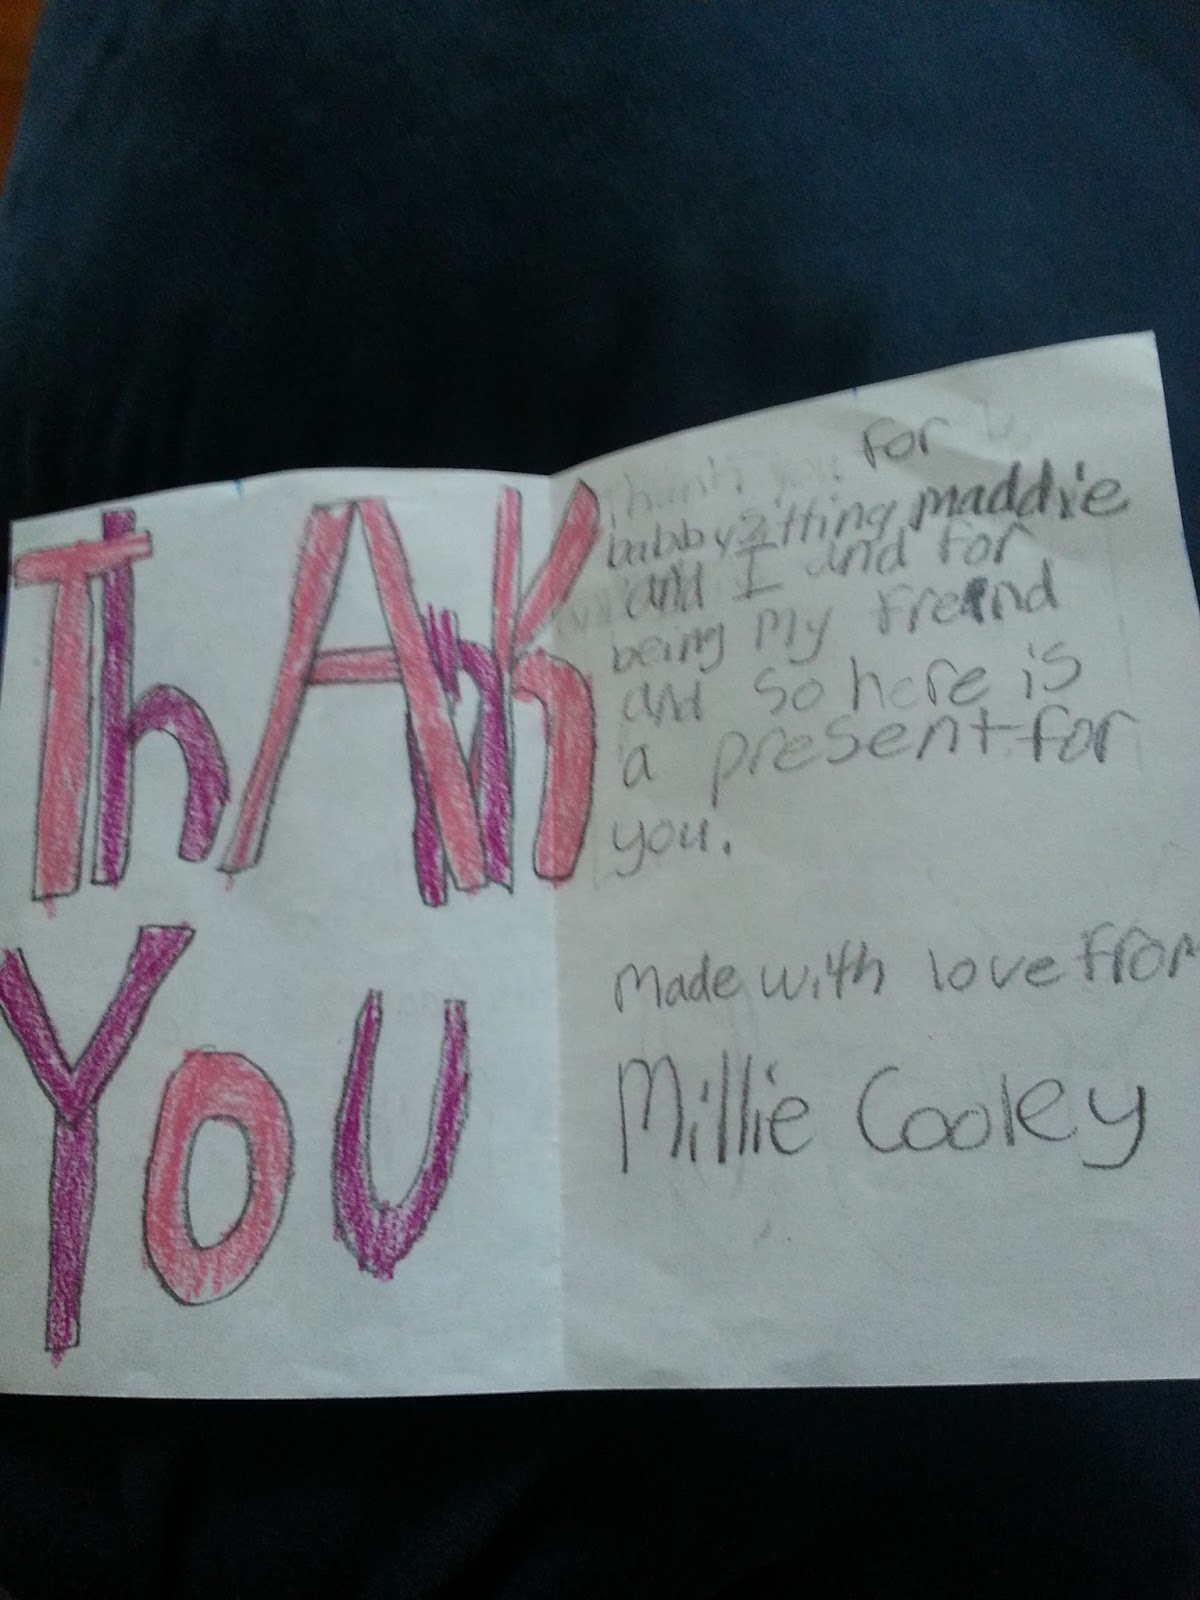 ThAnK
YOU
Thank you for
babbysitting maddie
and I and for
being my freind
and so here is
a present for
you.
Made with love from
Millie Cooley